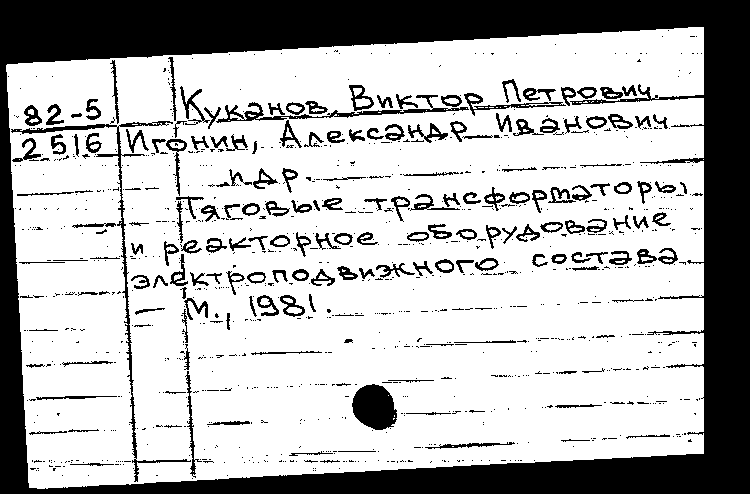 82-5 Куканов, Виктор Петрович.
2516 Игонин, Александр Иванович
и др.
Тяговые трансформаторы
и реакторное оборудование
электроподвижного состава.
— М., 1981.